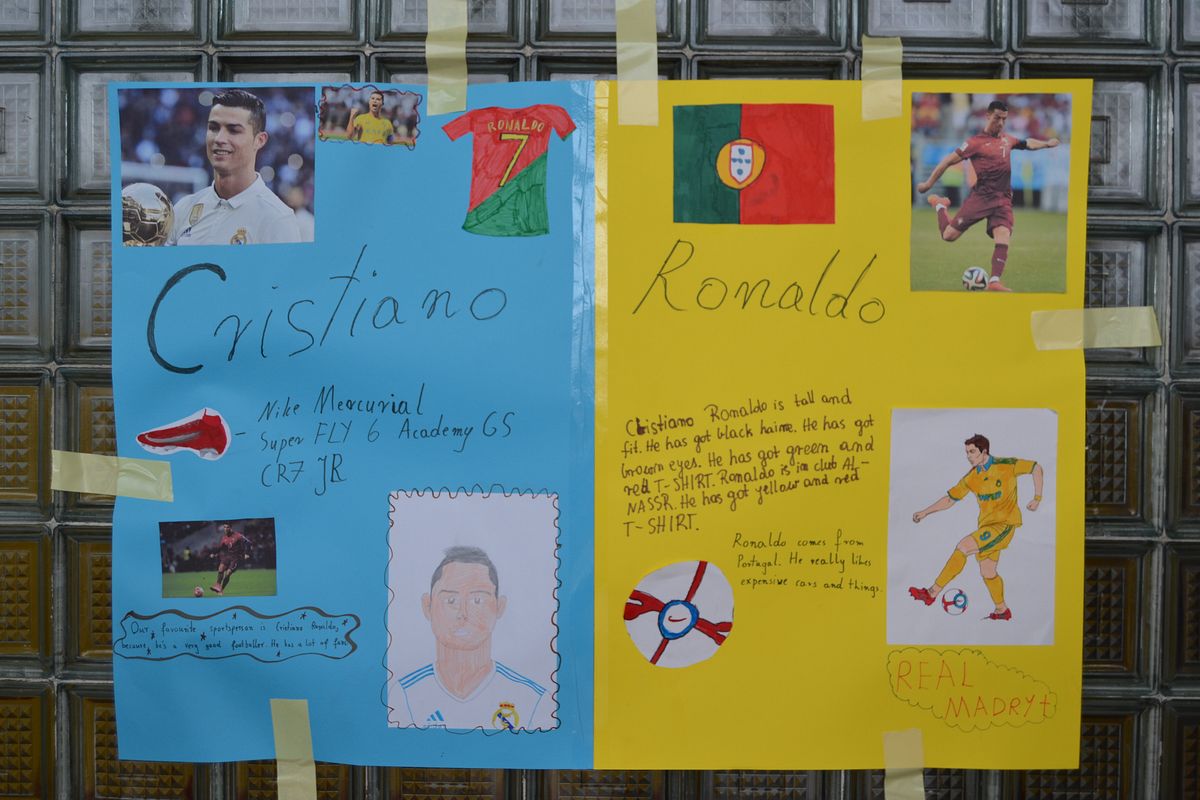 RONALDO
7
Cristiano
Ronaldo
Nike Mercurial
Super FLY 6 Academy GS
CR7 JR
Our favourite sportsperson is Cristiano Ronaldo,
because he's a very good footballer. He has a lot of fans
Cristiano Ronaldo is tall and
fit. He has got black haire. He has got
brown eyes. He has got green and
red T-SHIRT. Ronaldo is in club AL-
NASSR. He has got yellow and red
T-SHIRT.
Ronaldo comes from
Portugal. He really likes
expensive cars and things.
REAL
MADRYt